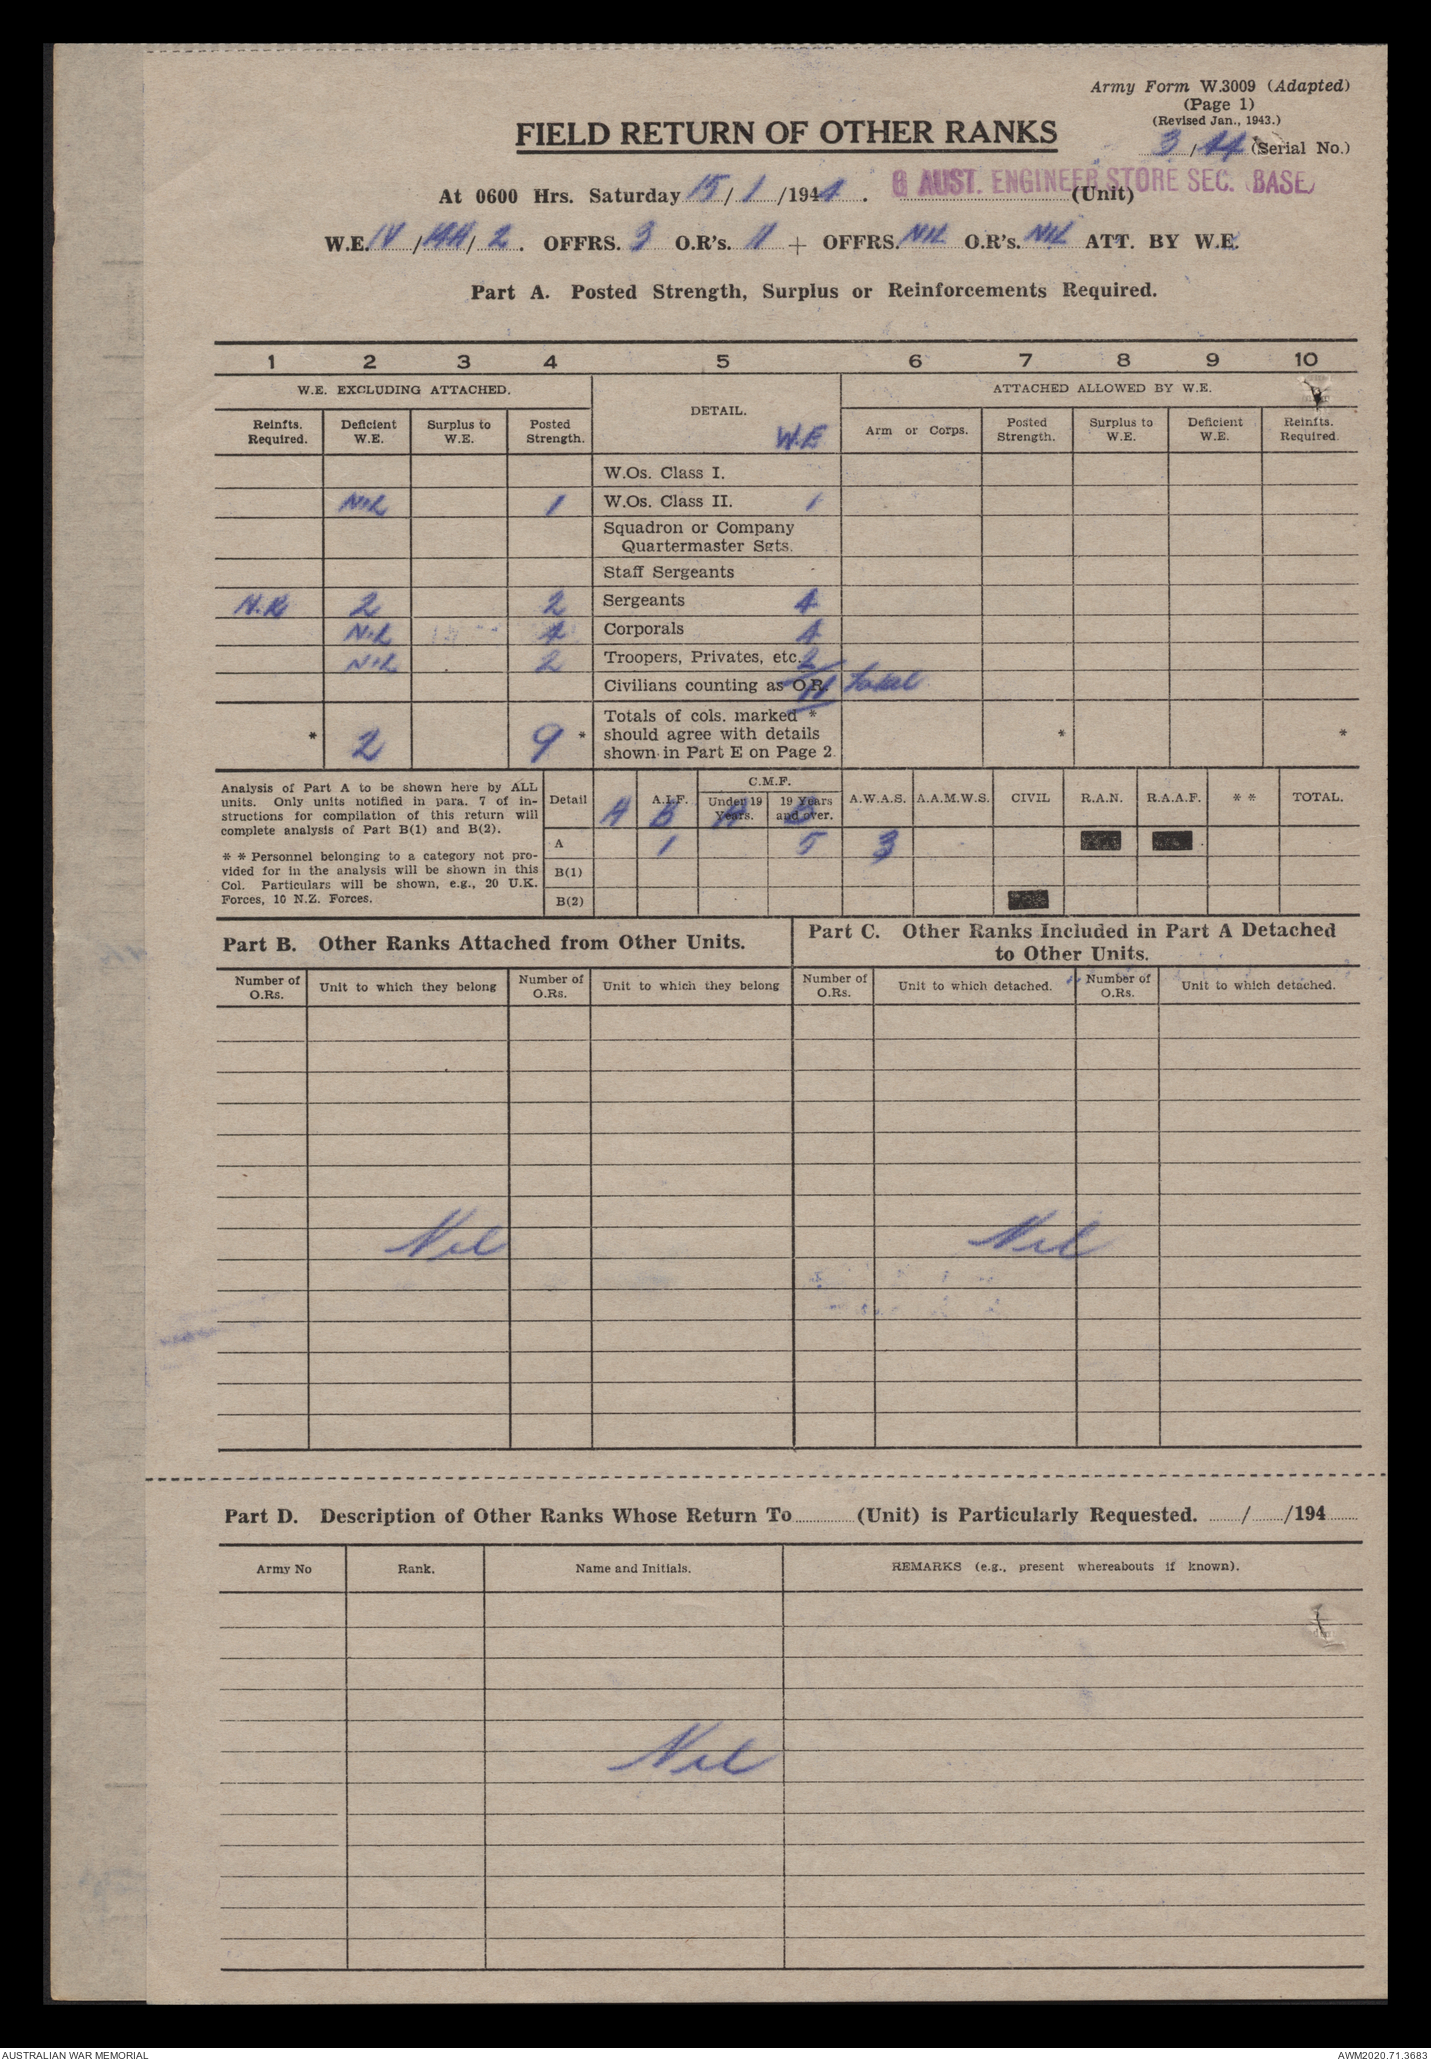 Army Form W.3009 (Adapted)
(Page 1)
(Revised Jan., 1943.)
FIELD RETURN OF OTHER RANKS
3/44 (Serial No.)
At 0600 Hrs. Saturday 15/1/1944. 6 AUST. ENGINEER STORE SEC. (BASE) (Unit)
W.E. IV/ /2. OFFRS. 3 O.R's. 11 + OFFRS. NIL O.R's. NIL ATT. BY W.E.
Part A. Posted Strength, Surplus or Reinforcements Required.
1 2 3 4 5 6 7 8 9 10
W.E. EXCLUDING ATTACHED. DETAIL. W.E ATTACHED ALLOWED BY W.E.
Reinfts. Required. Deficient W.E. Surplus to W.E. Posted Strength. Arm or Corps. Posted Strength. Surplus to W.E. Deficient W.E. Reinfts. Required.
W.Os. Class I.
NIL 1 W.Os. Class II. 1
Squadron or Company
Quartermaster Sgts.
Staff Sergeants
N.R 2 2 Sergeants 4
NIL 4 Corporals 4
NIL 2 Troopers, Privates, etc. 2
Civilians counting as O.R. 11 total
* 2 9 * Totals of cols. marked * should agree with details shown in Part E on Page 2. * *
Analysis of Part A to be shown here by ALL
units. Only units notified in para. 7 of in-
structions for compilation of this return will
complete analysis of Part B(1) and B(2).
* * Personnel belonging to a category not pro-
vided for in the analysis will be shown in this
Col. Particulars will be shown, e.g., 20 U.K.
Forces, 10 N.Z. Forces.
C.M.F.
Detail A A.I.F. B Under 19 Years. A 19 Years and over. B A.W.A.S. A.A.M.W.S. CIVIL R.A.N. R.A.A.F. * * TOTAL.
A 1 5 3
B(1)
B(2)
Part B. Other Ranks Attached from Other Units.
Part C. Other Ranks Included in Part A Detached
to Other Units.
Number of O.Rs. Unit to which they belong Number of O.Rs. Unit to which they belong Number of O.Rs. Unit to which detached. Number of O.Rs. Unit to which detached.
Nil Nil
Part D. Description of Other Ranks Whose Return To ............ (Unit) is Particularly Requested. ....../....../194......
Army No Rank. Name and Initials. REMARKS (e.g., present whereabouts if known).
Nil
AUSTRALIAN WAR MEMORIAL AWM2020.71.3683